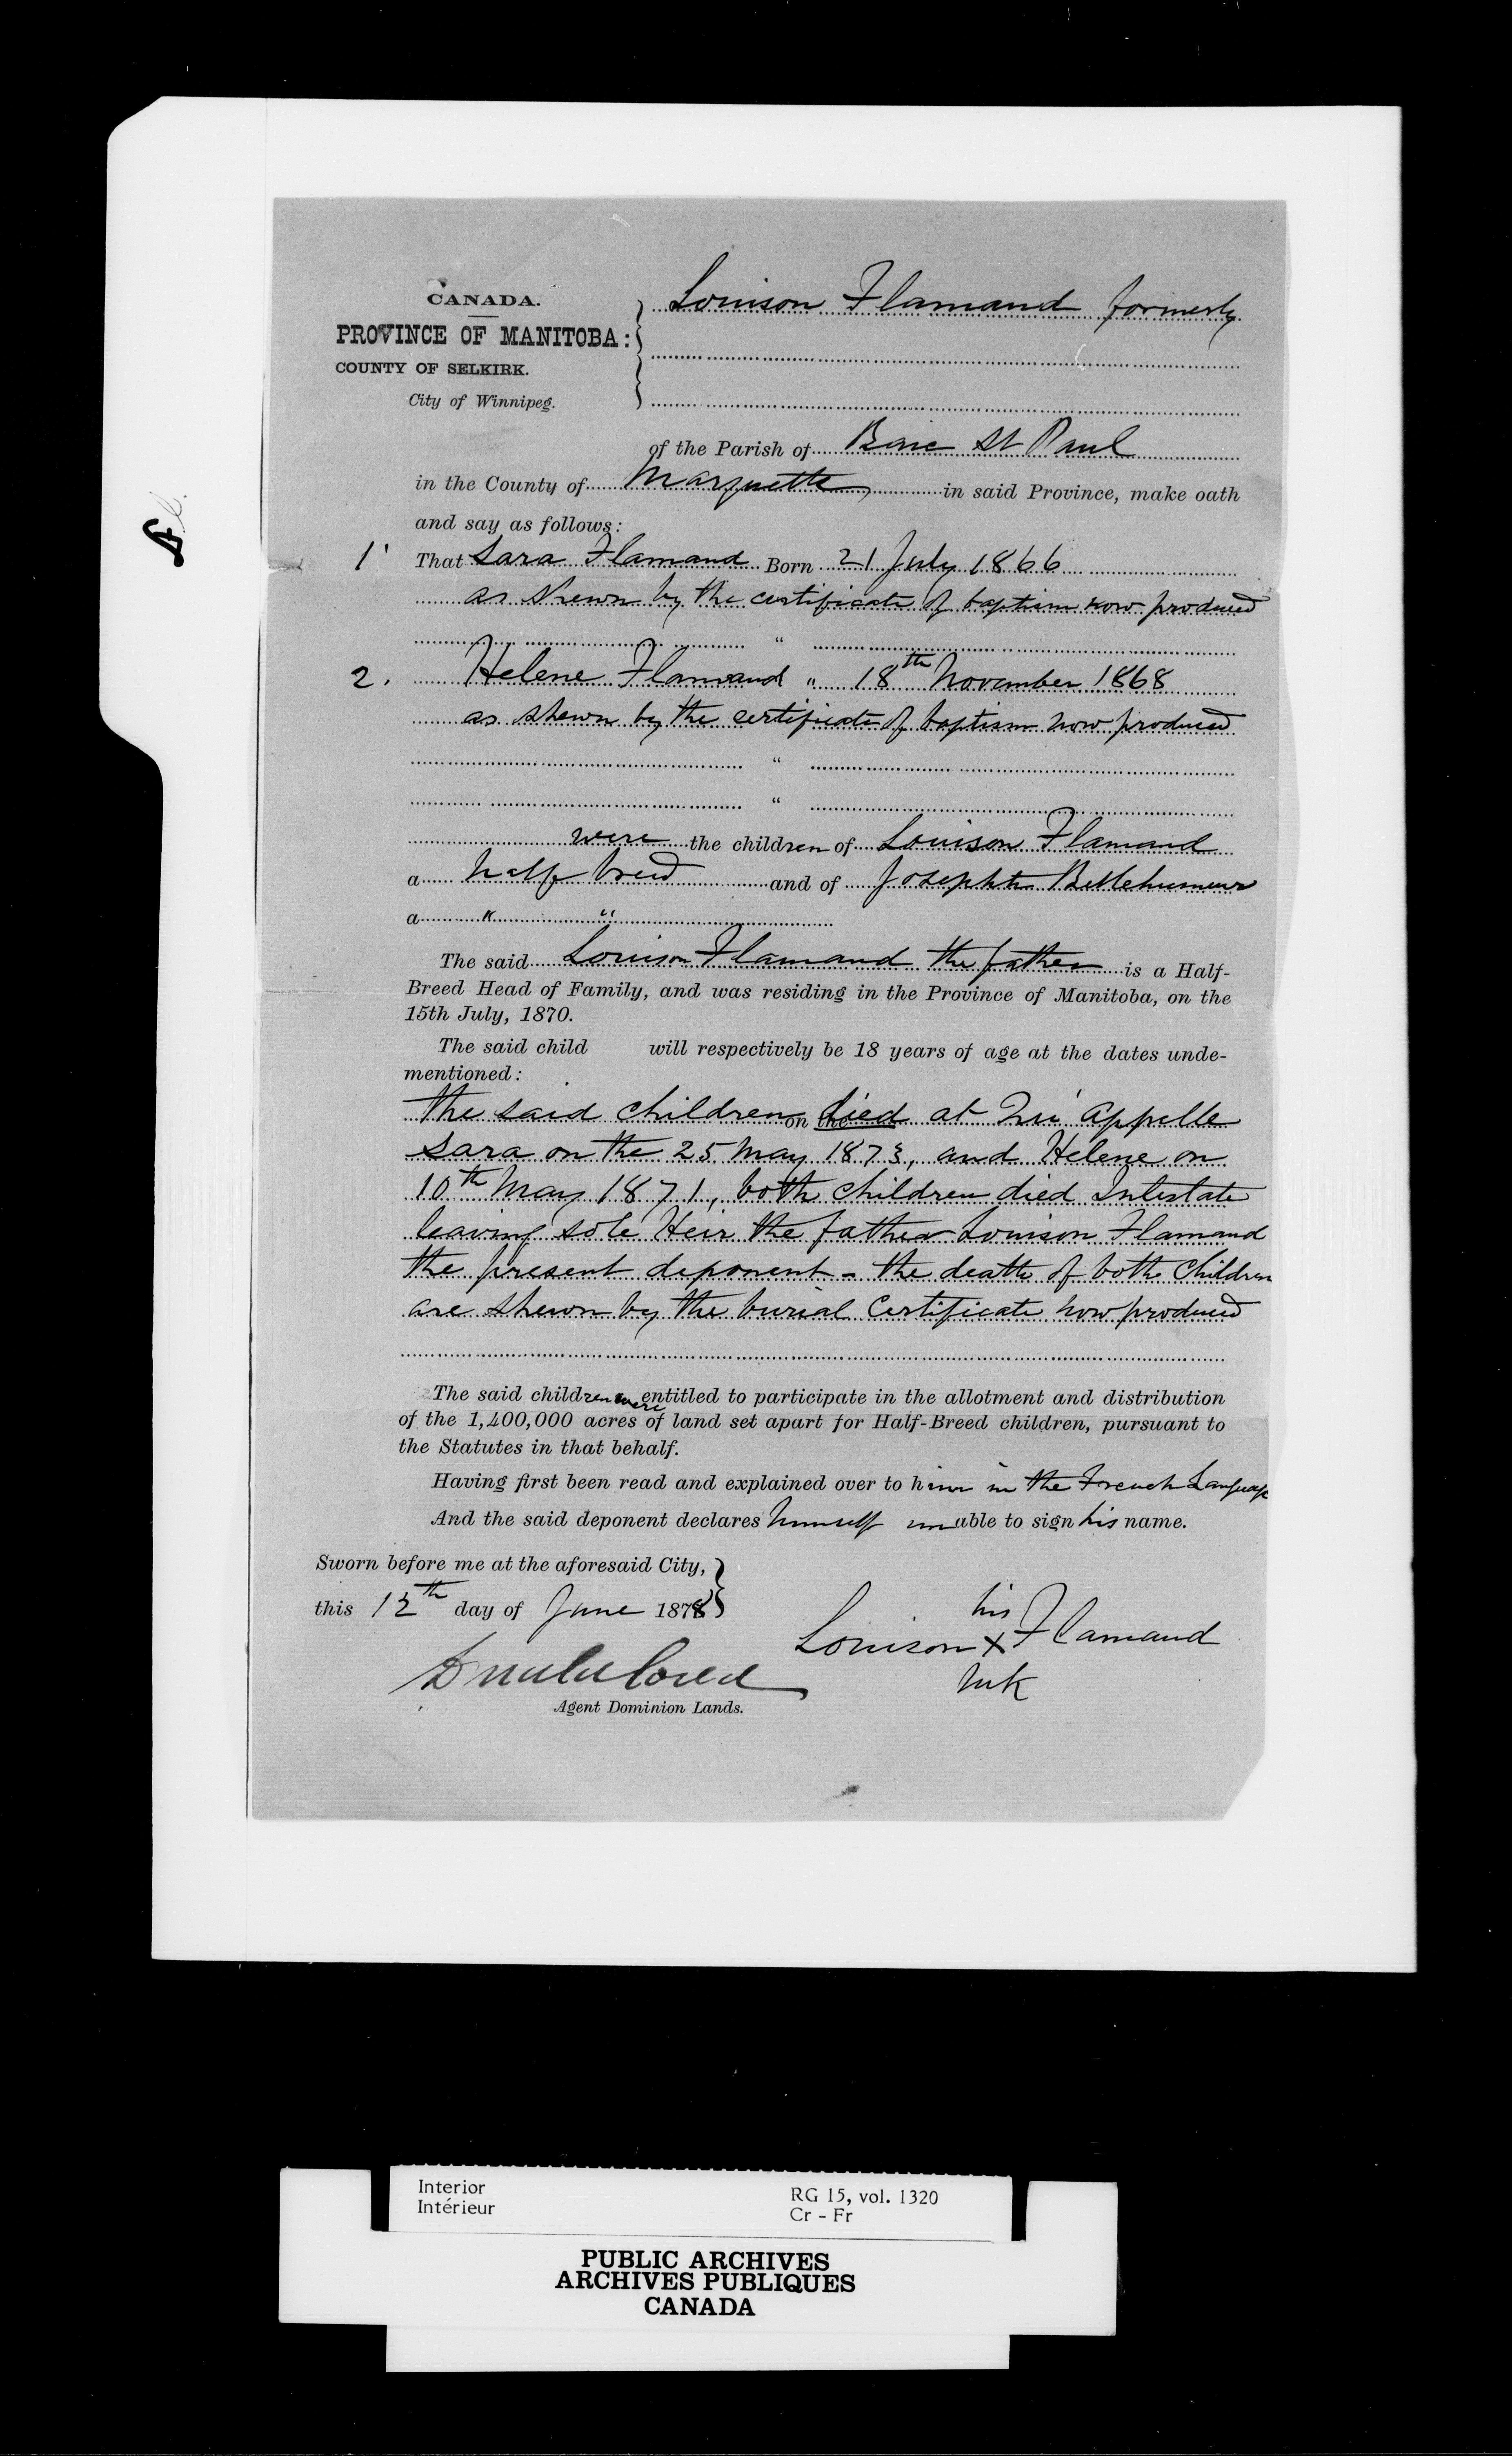 CANADA.
PROVINCE OF MANITOBA:
COUNTY OF SELKIRK.
City of Winnipeg.
Louison Flamand formerly
of the Parish of Baie St Paul
in the County of Marquette in said Province, make oath
and say as follows:
1 That Sara Flamand Born 21 July 1866
as shewn by the certificate of baptism now produced
"
2. Helene Flamand " 18th November 1868
as shewn by the certificate of baptism now produced
"
"
were the children of Louison Flamand
a half breed and of Josephte Bellehumeur
a " "
The said Louison Flamand the father is a Half-
Breed Head of Family, and was residing in the Province of Manitoba, on the
15th July, 1870.
The said child will respectively be 18 years of age at the dates unde-
mentioned:
the said children on the died at Qu'appelle
Sara on the 25 May 1873, and Helene on
10th May 1871, both children died Intestate
leaving sole Heir the father Louison Flamand
the present deponent - the death of both Children
are shewn by the burial Certificate now produced
The said children were entitled to participate in the allotment and distribution
of the 1,400,000 acres of land set apart for Half-Breed children, pursuant to
the Statutes in that behalf.
Having first been read and explained over to him in the French Language
And the said deponent declares himself unable to sign his name.
Sworn before me at the aforesaid City,
this 12th day of June 1878
his
Louison X Flamand
mk
Agent Dominion Lands.
Interior
Intérieur
RG 15, vol. 1320
Cr - Fr
PUBLIC ARCHIVES
ARCHIVES PUBLIQUES
CANADA